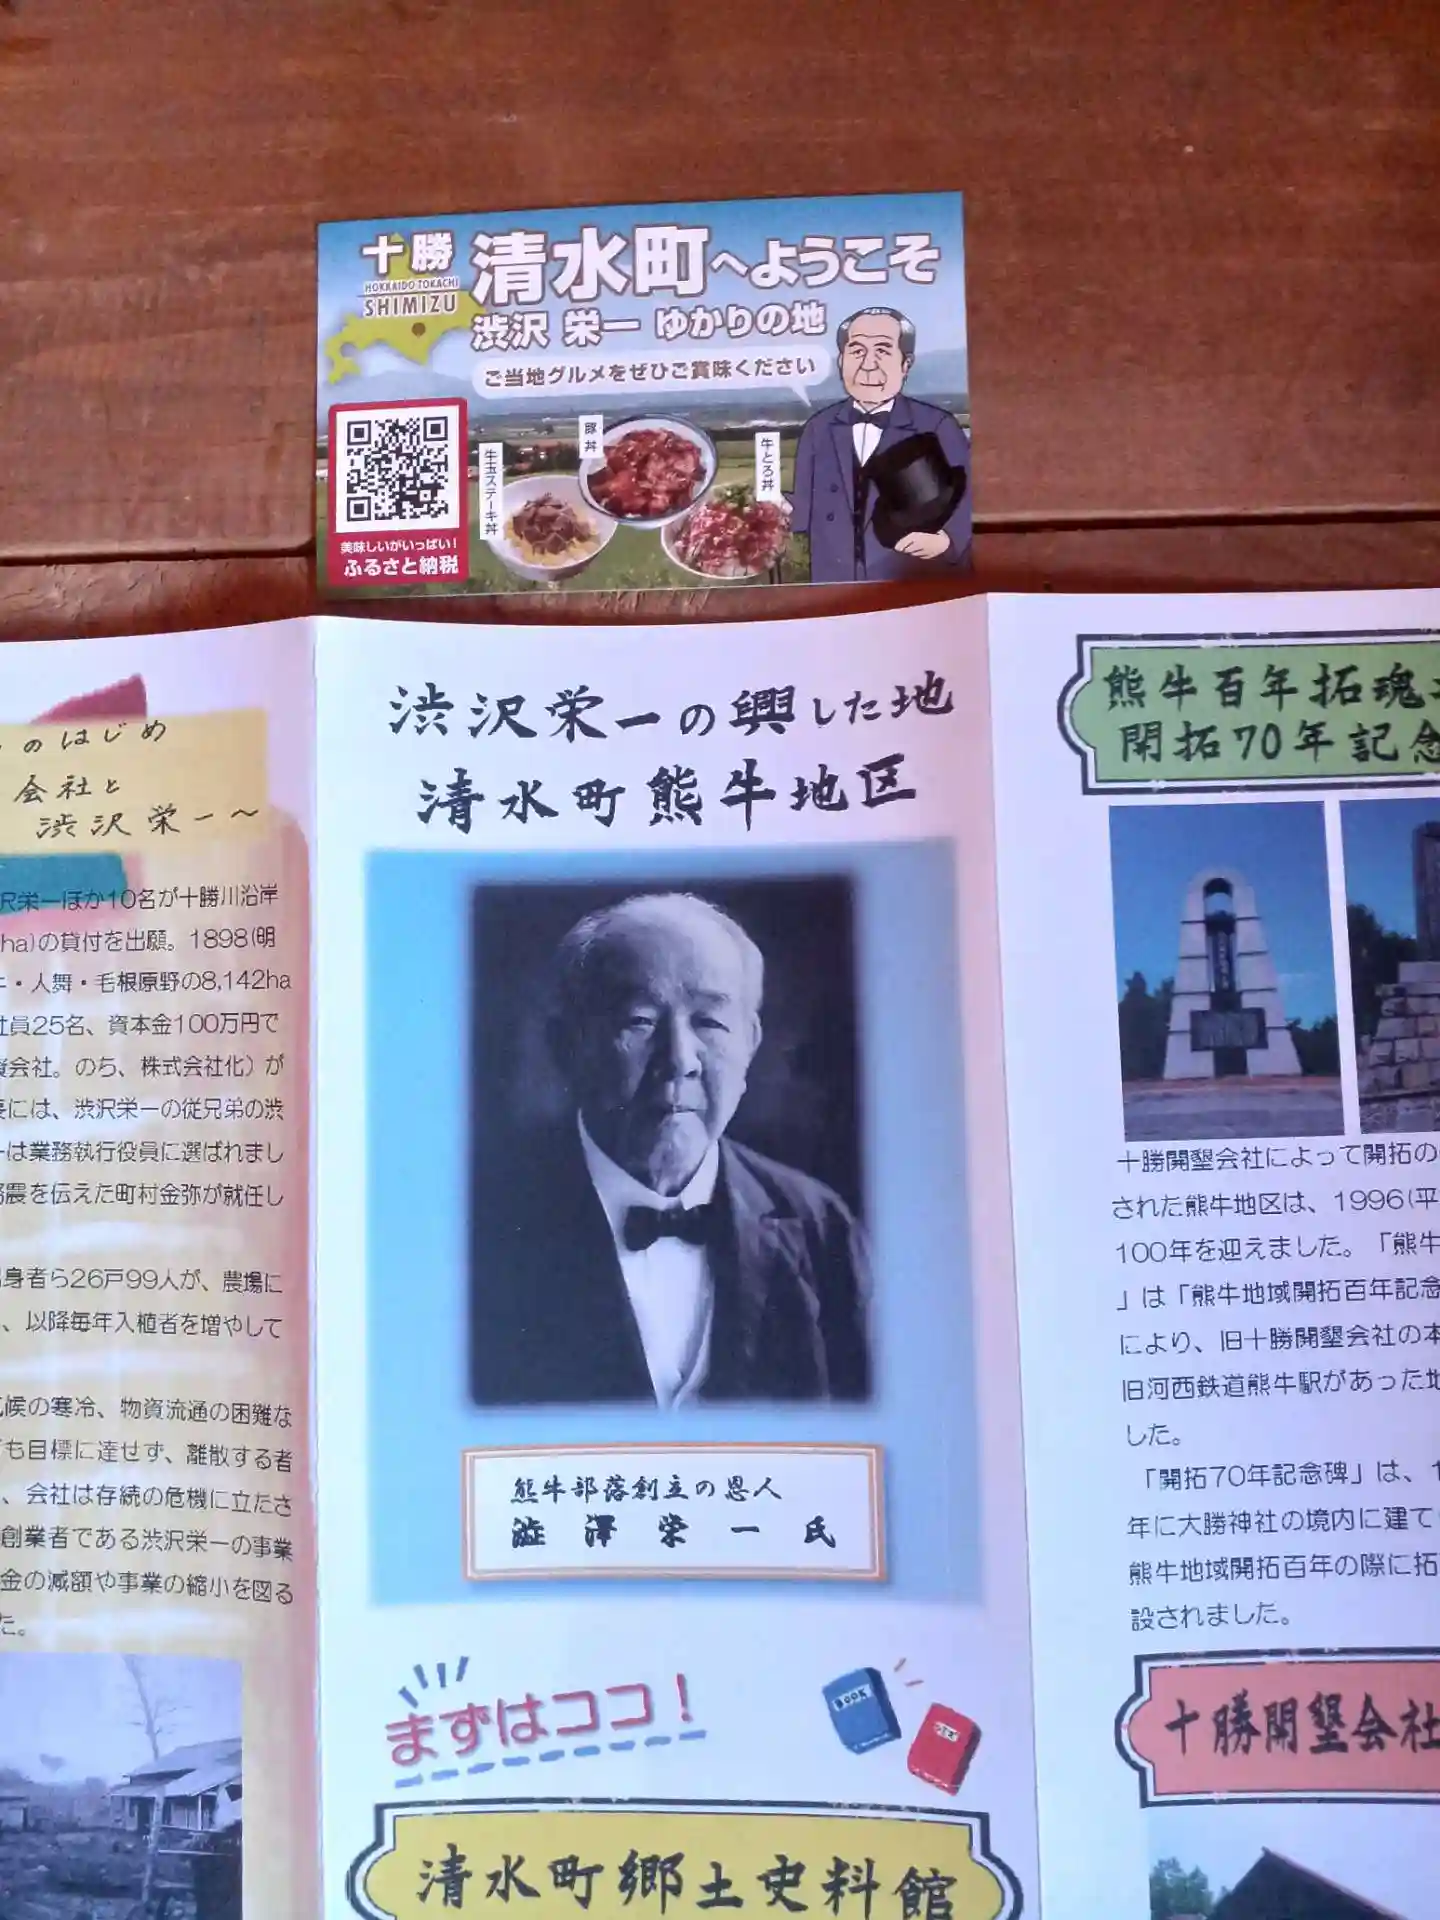 十勝
HOKKAIDO TOKACHI
SHIMIZU
清水町へようこそ
渋沢 栄一 ゆかりの地
ご当地グルメをぜひご賞味ください
牛玉ステーキ丼
豚丼
牛とろ丼
美味しいがいっぱい!
ふるさと納税
のはじめ
会社と
渋沢栄一〜
沢栄一ほか10名が十勝川沿岸
ha)の貸付を出願。1898(明
・人舞・毛根原野の8,142ha
社員25名、資本金100万円で
資会社。のち、株式会社化)が
長には、渋沢栄一の従兄弟の渋
一は業務執行役員に選ばれまし
農を伝えた町村金弥が就任し
身者ら26戸99人が、農場に
、以降毎年入植者を増やして
候の寒冷、物資流通の困難な
も目標に達せず、離散する者
、会社は存続の危機に立たさ
創業者である渋沢栄一の事業
金の減額や事業の縮小を図る
た。
渋沢栄一の興した地
清水町熊牛地区
熊牛部落創立の恩人
澁澤栄一氏
まずはココ!
BOOK
清水町郷土史料館
熊牛百年拓魂
開拓70年記念
十勝開墾会社によって開拓の
された熊牛地区は、1996(平
100年を迎えました。「熊牛
」は「熊牛地域開拓百年記念
により、旧十勝開墾会社の本
旧河西鉄道熊牛駅があった地
した。
「開拓70年記念碑」は、1
年に大勝神社の境内に建て
熊牛地域開拓百年の際に拓
設されました。
十勝開墾会社